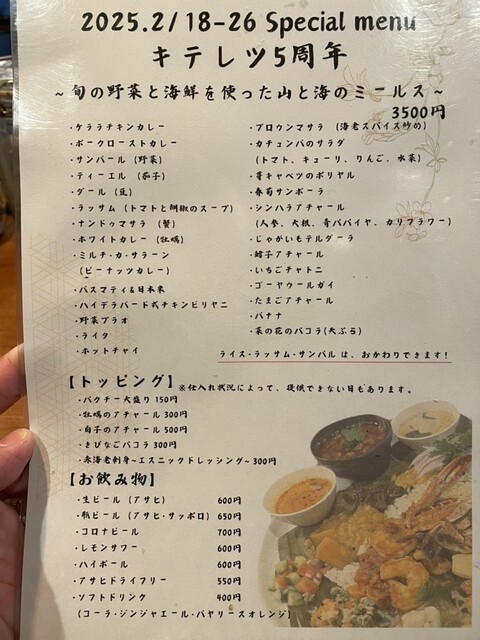 2025.2/18-26 Special menu
キテレツ5周年
~旬の野菜と海鮮を使った山と海のミールス~
3500円
・ケララチキンカレー
・ポークローストカレー
・サンバール (野菜)
・ティーエル (茄子)
・ダール (豆)
・ラッサム (トマトと胡椒のスープ)
・ナンドゥマサラ (蟹)
・ホワイトカレー (牡蠣)
・ミルチ・カ・サラーン
(ピーナッツカレー)
・バスマティ&日本米
・ハイデラバード式チキンビリヤニ
・野菜プラオ
・ライタ
・ホットチャイ
・プロウンマサラ (海老スパイス炒め)
・カチュンバのサラダ
(トマト、キューリ、りんご、水菜)
・芽キャベツのポリヤル
・春菊サンボーラ
・シンハラアチャール
(人参、大根、青パパイヤ、カリフラワー)
・じゃがいもテルダーラ
・鱈子アチャール
・いちごチャトニ
・ゴーヤウールガイ
・たまごアチャール
・バナナ
・菜の花のパコラ(天ぷら)
ライス・ラッサム・サンバルは、おかわりできます!
【トッピング】※仕入れ状況によって、提供できない日もあります。
・パクチー大盛り 150円
・牡蠣のアチャール 300円
・白子のアチャール 500円
・きびなごパコラ 300円
・赤海老刺身~エスニックドレッシング~300円
【お飲み物】
・生ビール (アサヒ) 600円
・瓶ビール (アサヒ・サッポロ) 650円
・コロナビール 700円
・レモンサワー 600円
・ハイボール 600円
・アサヒドライフリー 550円
・ソフトドリンク 400円
(コーラ・ジンジャエール・バヤリースオレンジ)